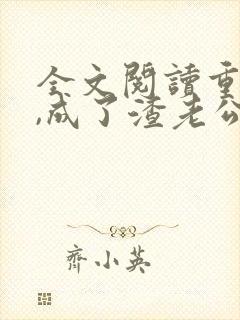 全文閱讀重
,成了渣老公
齊小英